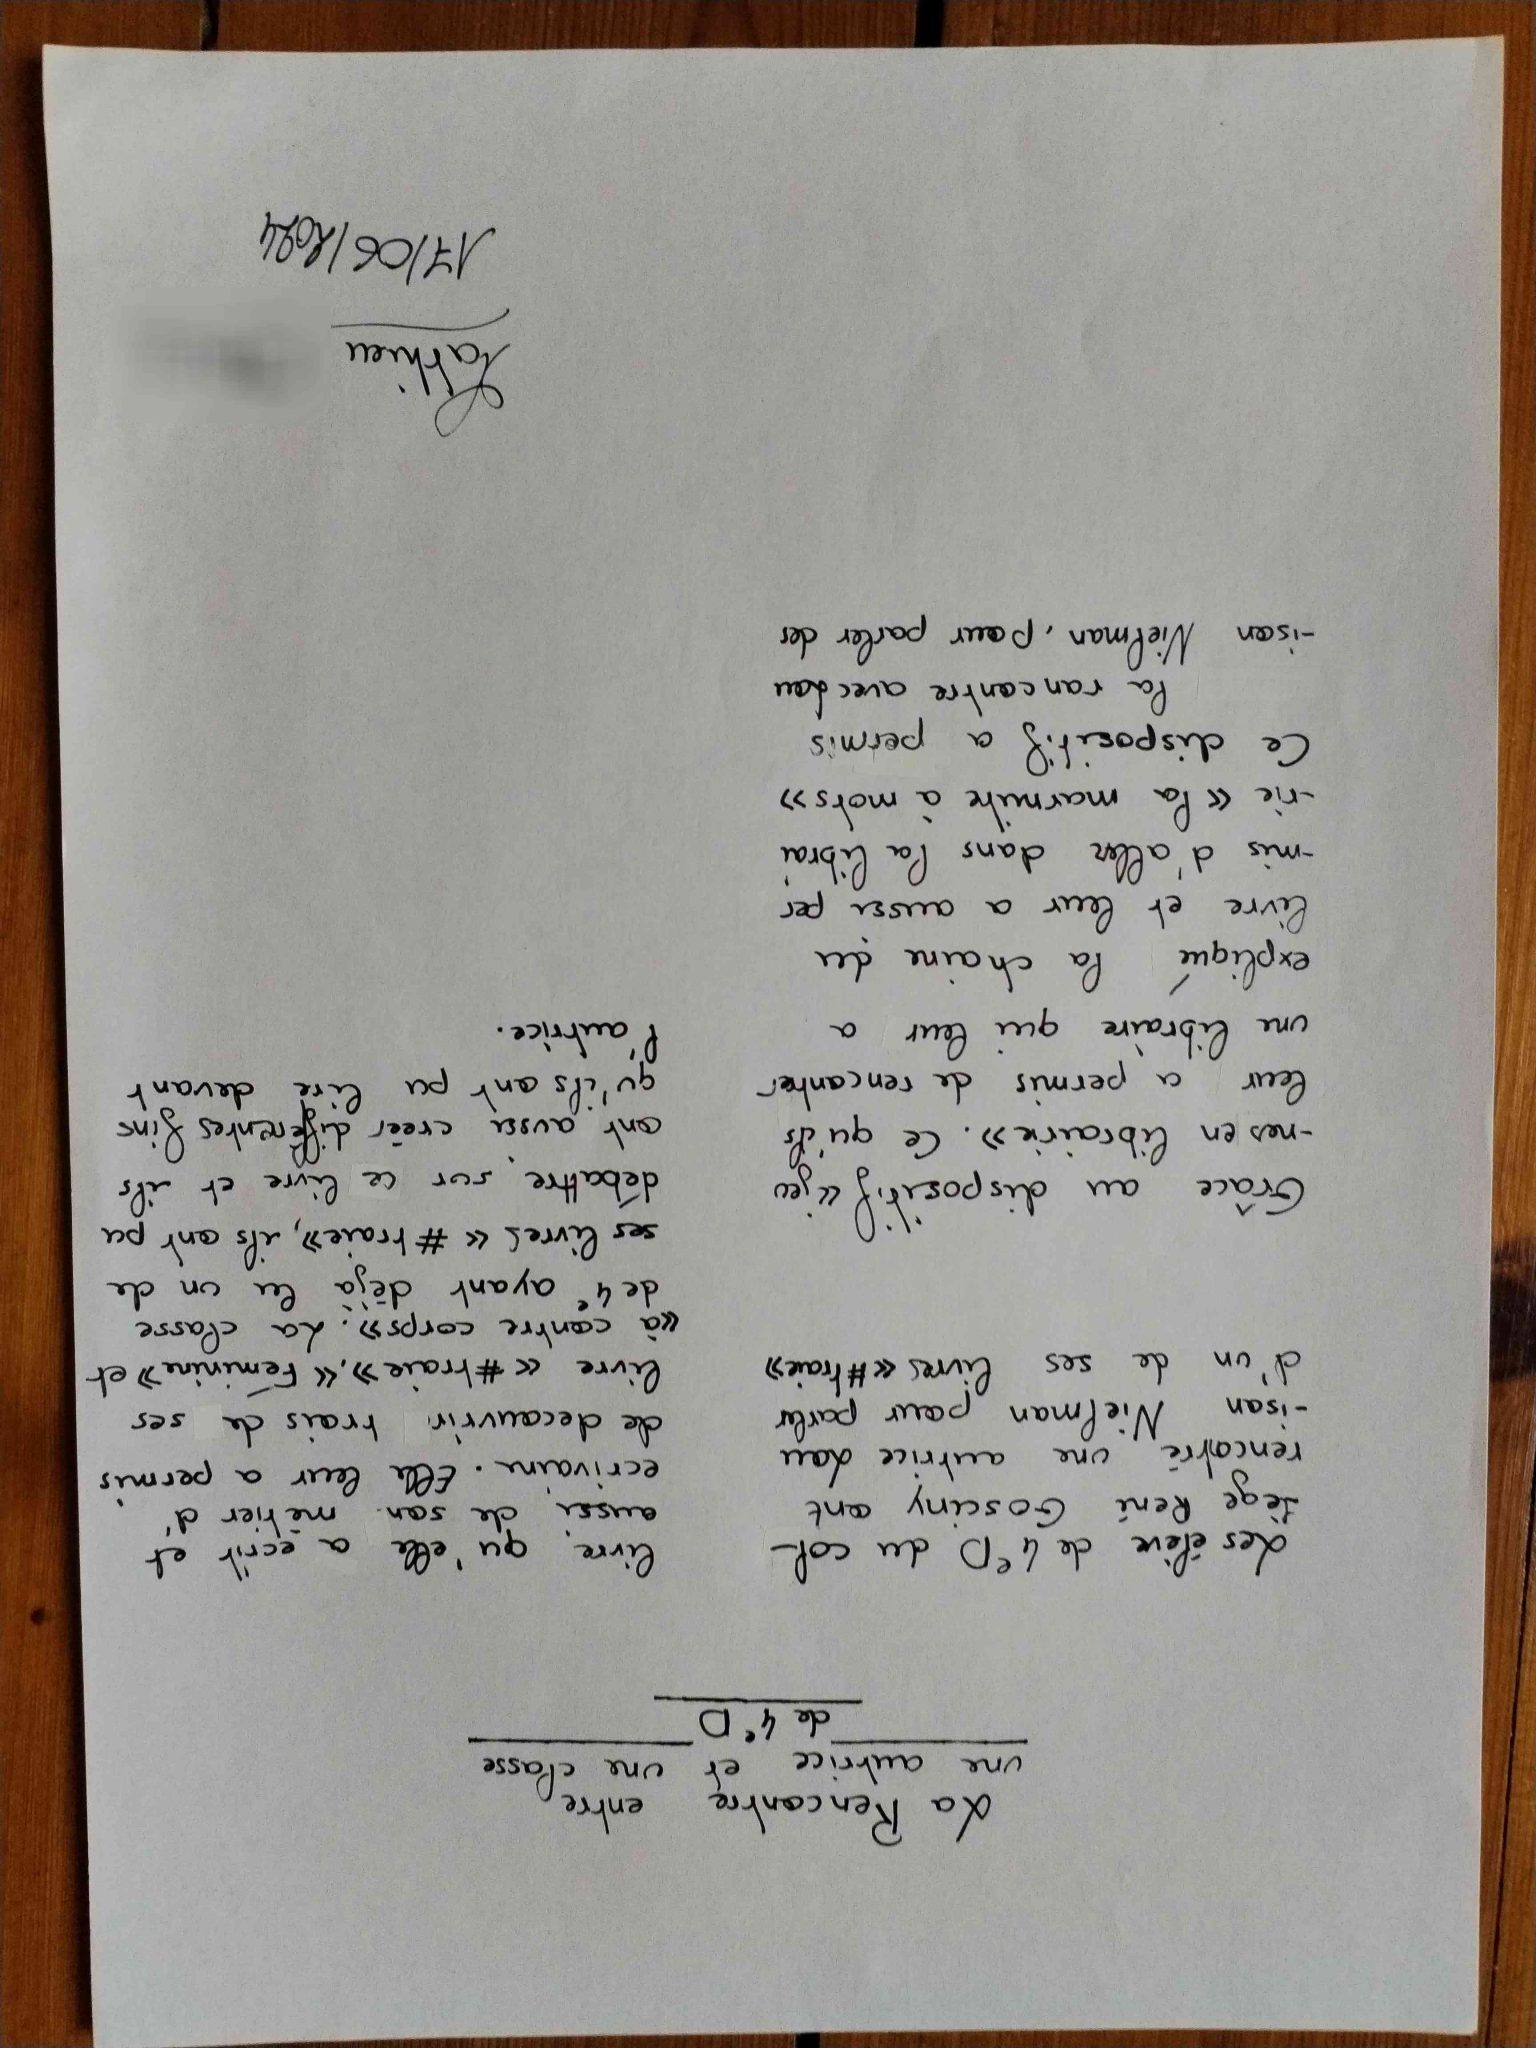 La Rencontre entre
une autrice et une classe
de 4°D
Les élève de 4°D du col-
lège René Gosciny ont
rencontré une autrice Lou
-isan Nielman pour parler
d'un de ses livres «#traie»
Grâce au dispositif «jeu
-nes en librairie». Ce qu'ils
leur a permis de rencontrer
une libraire qui leur a
expliqué la chaine du
livre et leur a aussi per
-mis d'aller dans la librai
-rie «la marmite à mots»
Ce dispositif a permis
la rancontre avec Lou
-ison Nielman, pour parler des
livre qu'elle a écrit et
aussi de son métier d'
ecrivain. Elle leur a permis
de decouvrir trois de ses
livre «#traie», «Féminine» et
«à contre corps». La classe
de 4e ayant déjà lu un de
ses livres «#traie», ils ont pu
débattre sur ce livre et ils
ont aussi créer différentes fins
qu'ils ont pu lire devant
l'autrice.
17/06/2024